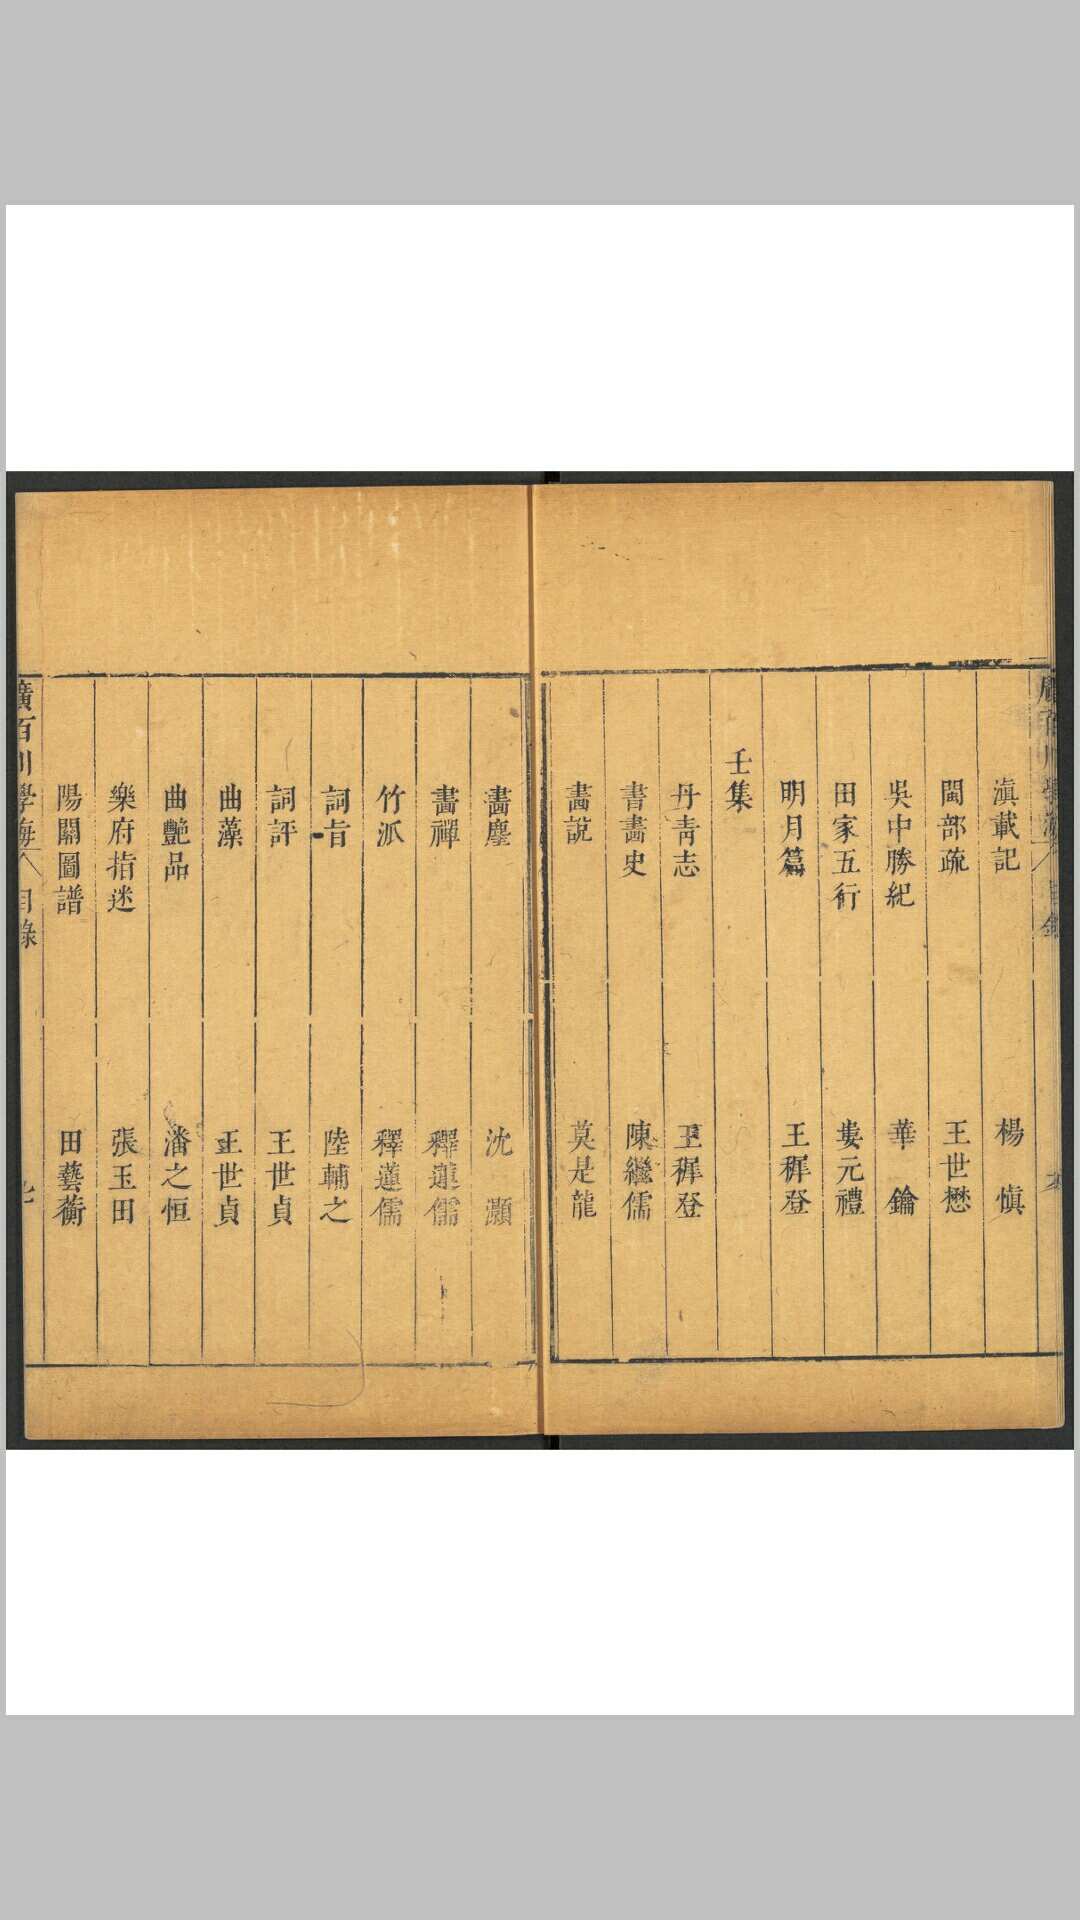 滇載記　楊慎
閩部疏　王世懋
吳中勝紀　華鑰
田家五行　婁元禮
明月篇　王穉登
壬集
丹青志　王穉登
書畫史　陳繼儒
畫說　莫是龍
畫麈　沈灝
畫禪　釋蓮儒
竹派　釋蓮儒
詞旨　陸輔之
詞評　王世貞
曲藻　王世貞
曲艷品　潘之恒
樂府指迷　張玉田
陽關圖譜　田藝蘅
廣百川學海　目錄